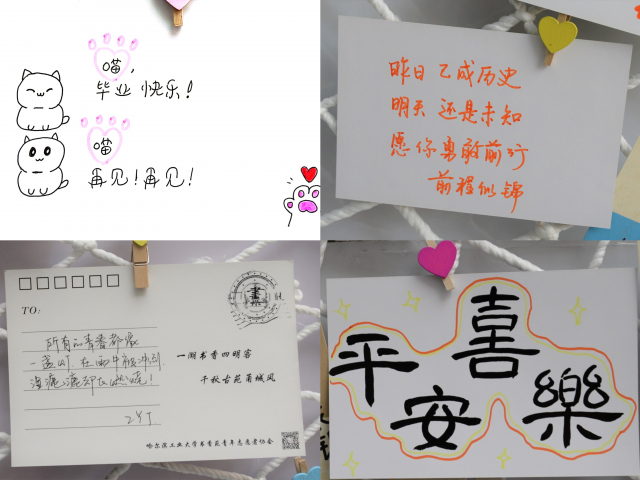 喵，
毕业快乐！
喵
再见！再见！
昨日已成历史
明天还是未知
愿你勇敢前行
前程似锦
TO:
所有的青春都像
一盏灯，在雨中被冲刷
一湖书香四明客
千秋古苑甬城风
哈尔滨工业大学书香苑青年志愿者协会
平安喜樂